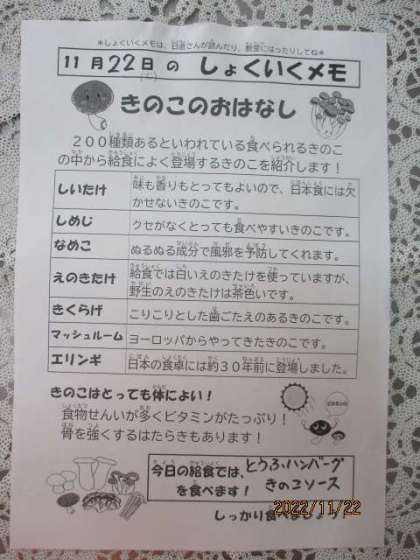 ＊しょくいくメモは、日直さんが読んだり、教室にはったりしてね＊
11月22日の しょくいくメモ
きのこのおはなし
２００種類あるといわれている食べられるきのこ
の中から給食によく登場するきのこを紹介します！
しいたけ 味も香りもとってもよいので、日本食には欠
かせないきのこです。
しめじ クセがなくとっても食べやすいきのこです。
なめこ ぬるぬる成分で風邪を予防してくれます。
えのきたけ 給食では白いえのきたけを使っていますが、
野生のえのきたけは茶色いです。
きくらげ こりこりとした歯ごたえのあるきのこです。
マッシュルーム ヨーロッパからやってきたきのこです。
エリンギ 日本の食卓には約３０年前に登場しました。
きのこはとっても体によい！
食物せんいが多くビタミンがたっぷり！
骨を強くするはたらきもあります！
今日の給食では、とうふハンバーグ
を食べます！ きのこソース
しっかり食べましょう
2022/11/22